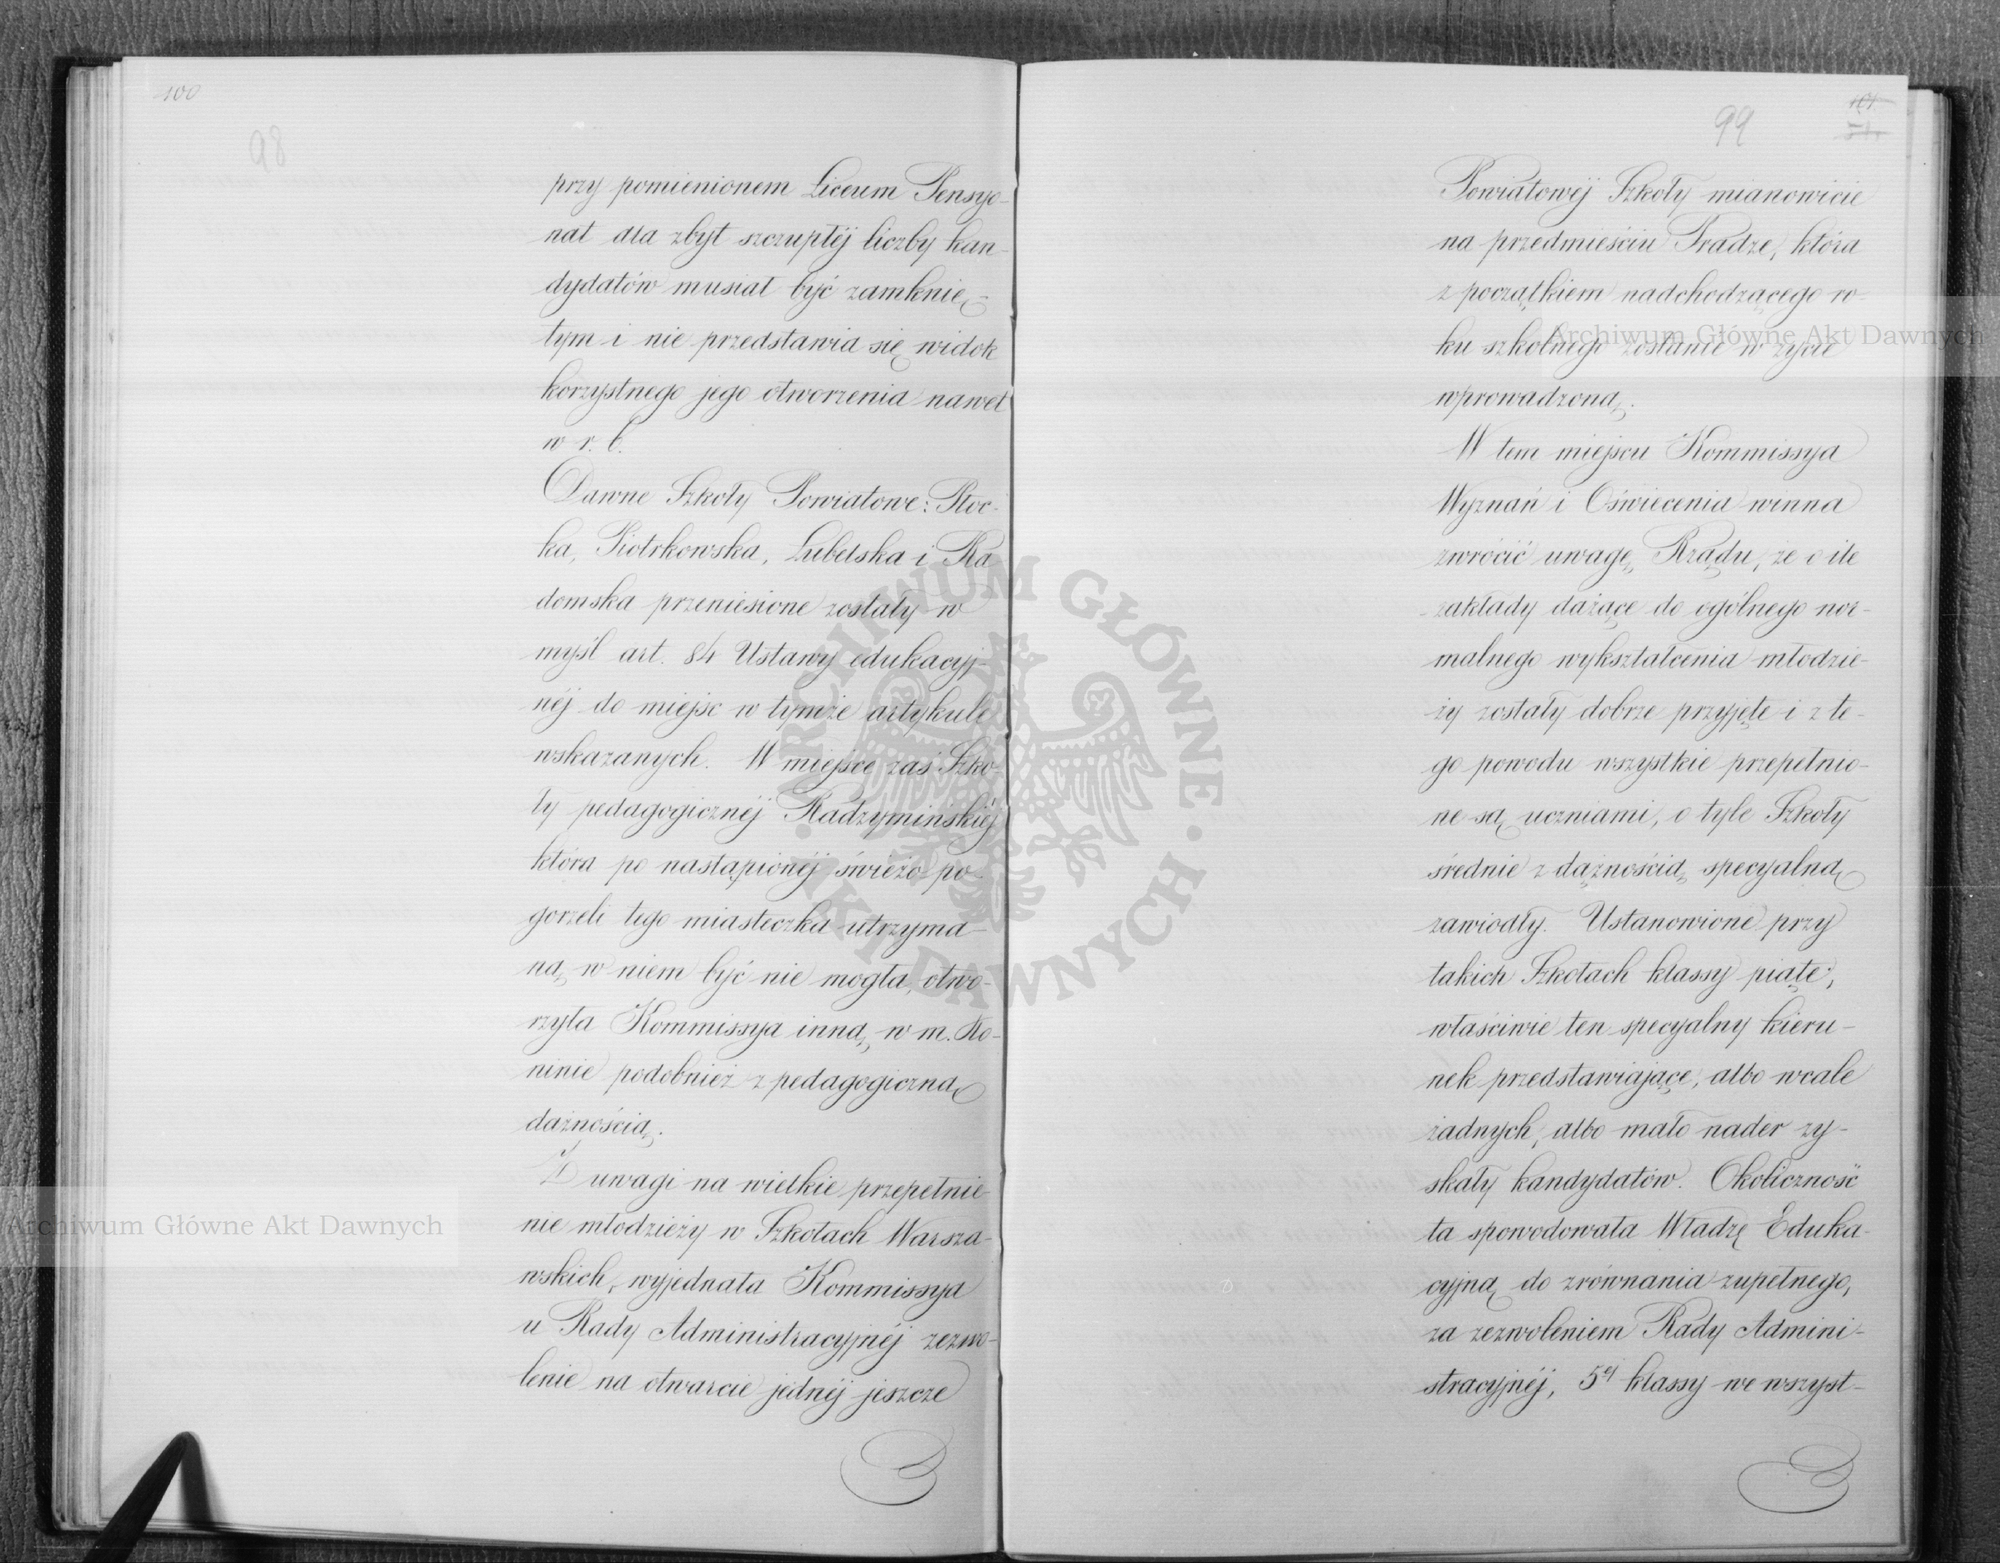 100
98
przy pomienionem Liceum Pensyo-
nat dla zbyt szczupłéj liczby kan-
dydatów musiał być zamknię-
tym i nie przedstawia się widok
korzystnego jego otworzenia nawet
w r. b.
Dawne Szkoły Powiatowe: Płoc-
ka, Piotrkowska, Lubelska i Ra
domska przeniesione zostały w
myśl art. 84 Ustawy edukacyj-
néj do miejsc w tymże artykule
wskazanych. W miejsce zaś Szko-
ły pedagogicznéj Radzymińskiéj
która po nastąpionéj świeżo po-
gorzeli tego miasteczka utrzyma-
ną w niem być nie mogła, otwo-
rzyła Kommissya inną, w m. Ko-
ninie podobnież z pedagogiczną
dążnością.
Z uwagi na wielkie przepełnie
nie młodzieży w Szkołach Warsza-
wskich, wyjednała Kommissya
u Rady Administracyjnéj zezwo-
lenie na otwarcie jednéj jeszcze
99
101
Powiatowéj Szkoły mianowicie
na przedmieściu Pradze, która
z początkiem nadchodzącego ro-
ku szkolnego zostanie w życie
wprowadzoną.
W tem miejscu Kommissya
Wyznań i Oświecenia winna
zwrócić uwagę Rządu, że o ile
zakłady dążące do ogólnego nor-
malnego wykształcenia młodzie-
ży zostały dobrze przyjęte i z te-
go powodu wszystkie przepełnio-
ne są uczniami, o tyle Szkoły
średnie z dążnością specyalną
zawiodły. Ustanowione przy
takich Szkołach klassy piąte,
właściwie ten specyalny kieru-
nek przedstawiające, albo wcale
żadnych, albo mało nader zy-
skały kandydatów. Okoliczność
ta spowodowała Władzę Eduka-
cyjną do zrównania zupełnego,
za zezwoleniem Rady Admini-
stracyjnéj, 5éj klassy we wszyst-
Archiwum Główne Akt Dawnych
Archiwum Główne Akt Dawnych
ARCHIWUM GŁÓWNE · AKT DAWNYCH ·